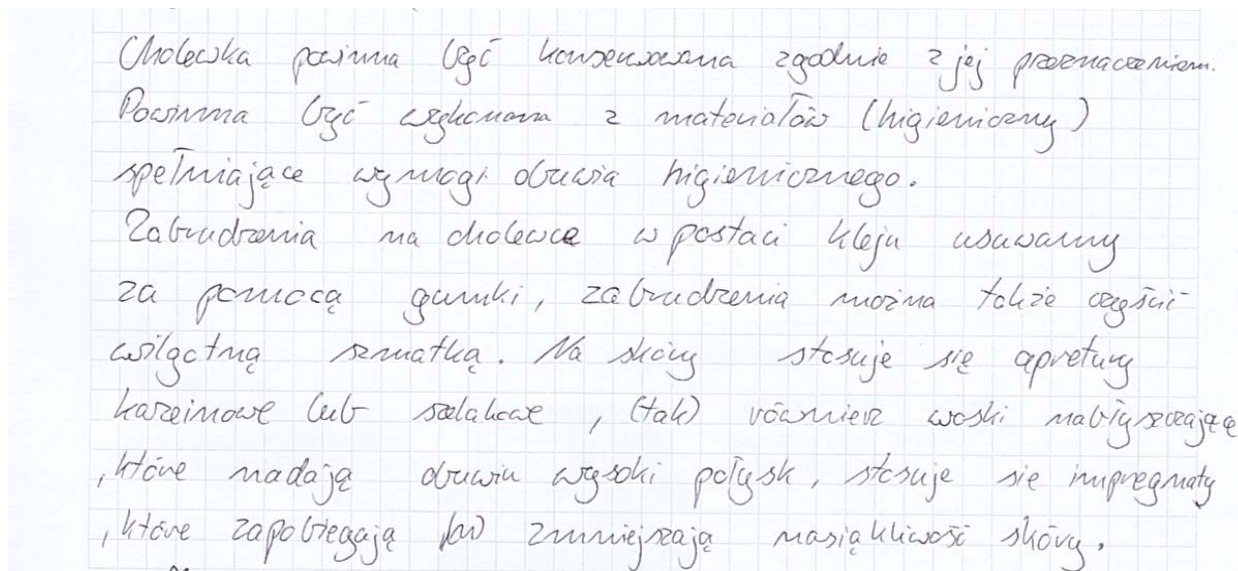 Cholewka powinna być konserwowana zgodnie z jej przeznaczeniem.
Powinna być wykonana z materiałów (higieniczny)
spełniające wymogi obuwia higienicznego.
Zabrudzenia na cholewce w postaci kleju usuwamy
za pomocą gumki, zabrudzenia można także czyścić
wilgotną szmatką. Na skóry stosuje się apretury
kazeinowe lub szelakowe, (tak) również woski nabłyszczające
, które nadają obuwiu wysoki połysk, stosuje się impregnaty
, które zapobiegają zmniejszają nasiąkliwość skóry.